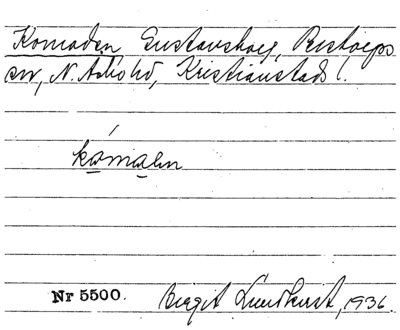 Komaden Gustavsborg, Perstorps
sn, N. Åsbo hd, Kristianstads l.
kómaden
Nr 5500.
Birgit Lundkvist, 1936.